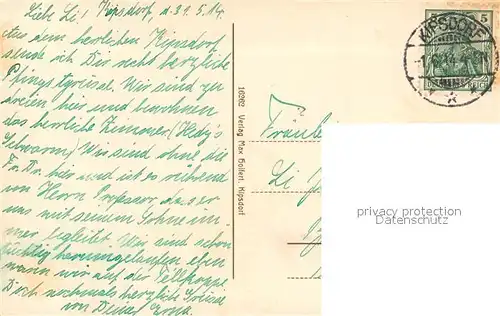 Liebe Li! Kipsdorf, d. 31.5.14.
Aus dem herrlichen Kipsdorf
sende ich Dir recht herzliche
Pfingstgrüsse. Wir sind zu
dreien hier und bewohnen
das herrliche Zimmer (Hedy's
Schwarm) Wir sind ohne die
Fr. Dr. hier und ist es rührend
von Herrn Professor, dass er
uns mit seinem Sohne im-
mer begleitet. Wir sind schon
tüchtig herumgelaufen eben
waren wir auf der Tellkoppe.
Doch nochmals herzliche Grüsse
von Deiner
16282 Verlag Max Seifert, Kipsdorf
Fräulein
Li
KIPSDORF
5
REICH
privacy protection
Datenschutz